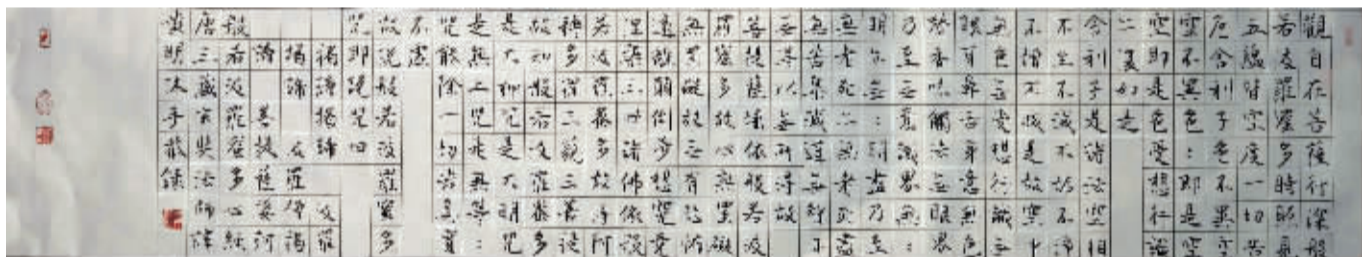 觀自在菩薩行深般
若波羅蜜多時照見
五蘊皆空度一切苦
厄舍利子色不異空
空不異色:即是空
空即是色受想行識
亦復如是
舍利子是諸法空相
不生不滅不垢不淨
不增不減是故空中
無色無受想行識無
眼耳鼻舌身意無色
聲香味觸法無眼界
乃至無意識界無:
明亦無:明盡乃至
無老死亦無老死盡
無苦集滅道無智亦
無得以無所得故
菩提薩埵依般若波
羅蜜多故心無罣礙
無罣礙故無有恐怖
遠離顛倒夢想究竟
涅槃三世諸佛依般
若波羅蜜多故得阿
耨多羅三藐三菩提
故知般若波羅蜜多
是大神咒是大明咒
是無上咒是無等:
咒能除一切苦真實
不虛
故說般若波羅蜜多
咒即說咒曰
揭諦揭諦波羅
揭諦波羅僧揭
諦菩提薩婆訶
般若波羅蜜多心經
唐三藏玄奘法師譯
明太手敬錄